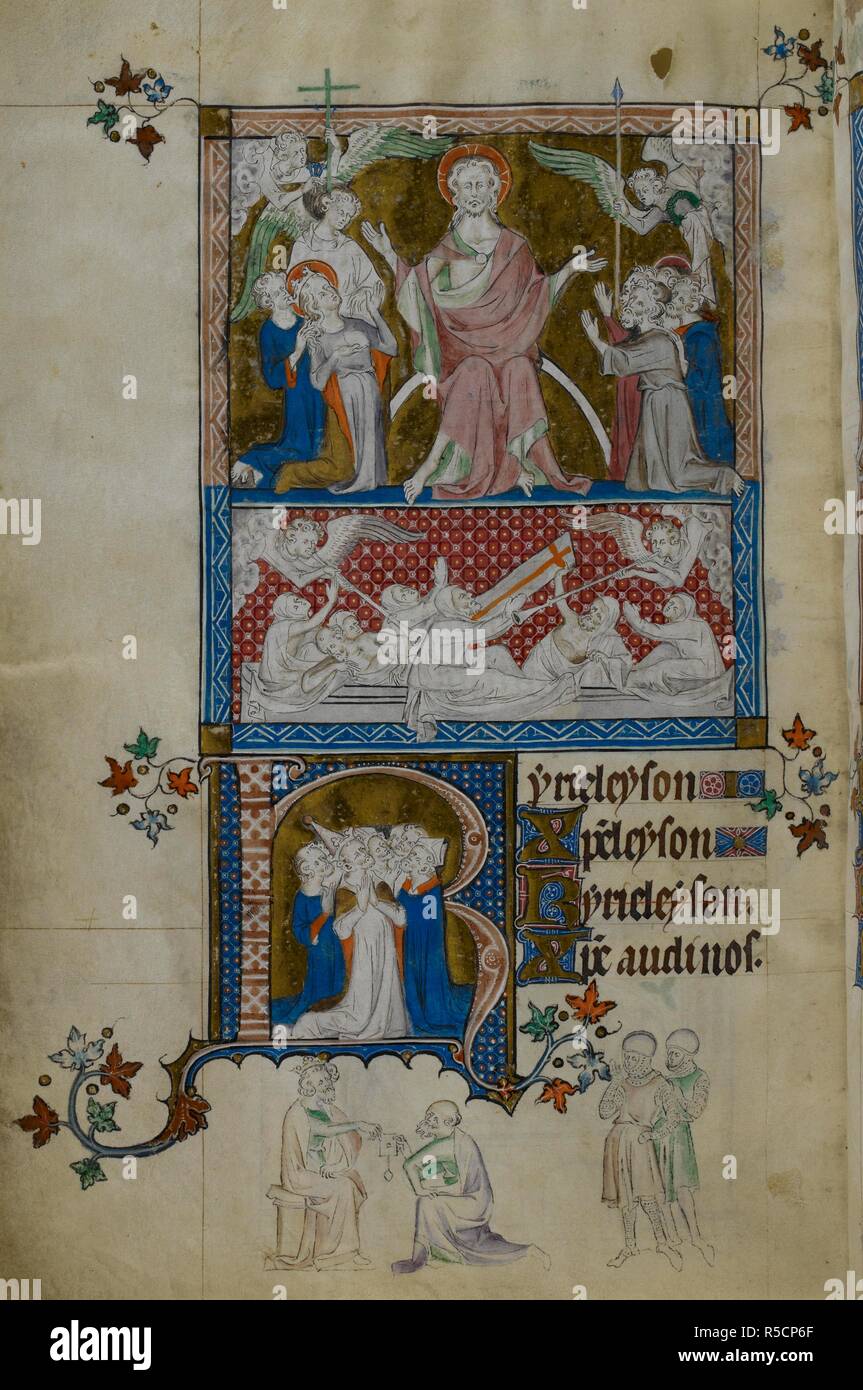 yrieleyson
Xpeleyson
Kyrieleyson.
Xpe audi nos.
alamy
Image ID: R5CP6F
www.alamy.com